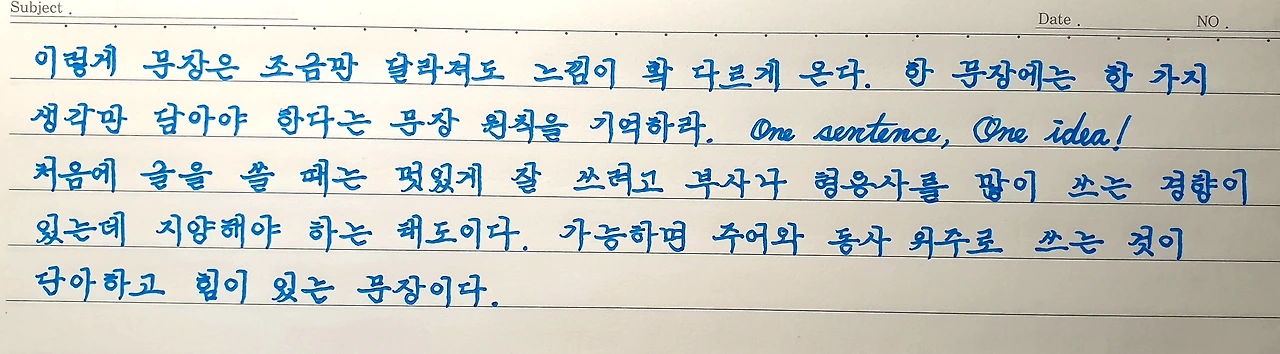 Subject .
Date . NO .
이렇게 문장은 조금만 달라져도 느낌이 확 다르게 온다. 한 문장에는 한 가지
생각만 담아야 한다는 문장 원칙을 기억하라. One sentence, One idea!
처음에 글을 쓸 때는 멋있게 잘 쓰려고 부사나 형용사를 많이 쓰는 경향이
있는데 지양해야 하는 태도이다. 가능하면 주어와 동사 위주로 쓰는 것이
단아하고 힘이 있는 문장이다.